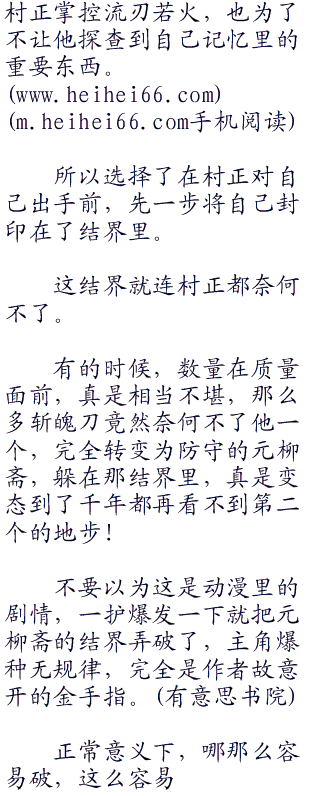 村正掌控流刃若火，也为了
不让他探查到自己记忆里的
重要东西。
(www.heihei66.com)
(m.heihei66.com手机阅读)
所以选择了在村正对自
己出手前，先一步将自己封
印在了结界里。
这结界就连村正都奈何
不了。
有的时候，数量在质量
面前，真是相当不堪，那么
多斩魄刀竟然奈何不了他一
个，完全转变为防守的元柳
斋，躲在那结界里，真是变
态到了千年都再看不到第二
个的地步！
不要以为这是动漫里的
剧情，一护爆发一下就把元
柳斋的结界弄破了，主角爆
种无规律，完全是作者故意
开的金手指。(有意思书院)
正常意义下，哪那么容
易破，这么容易